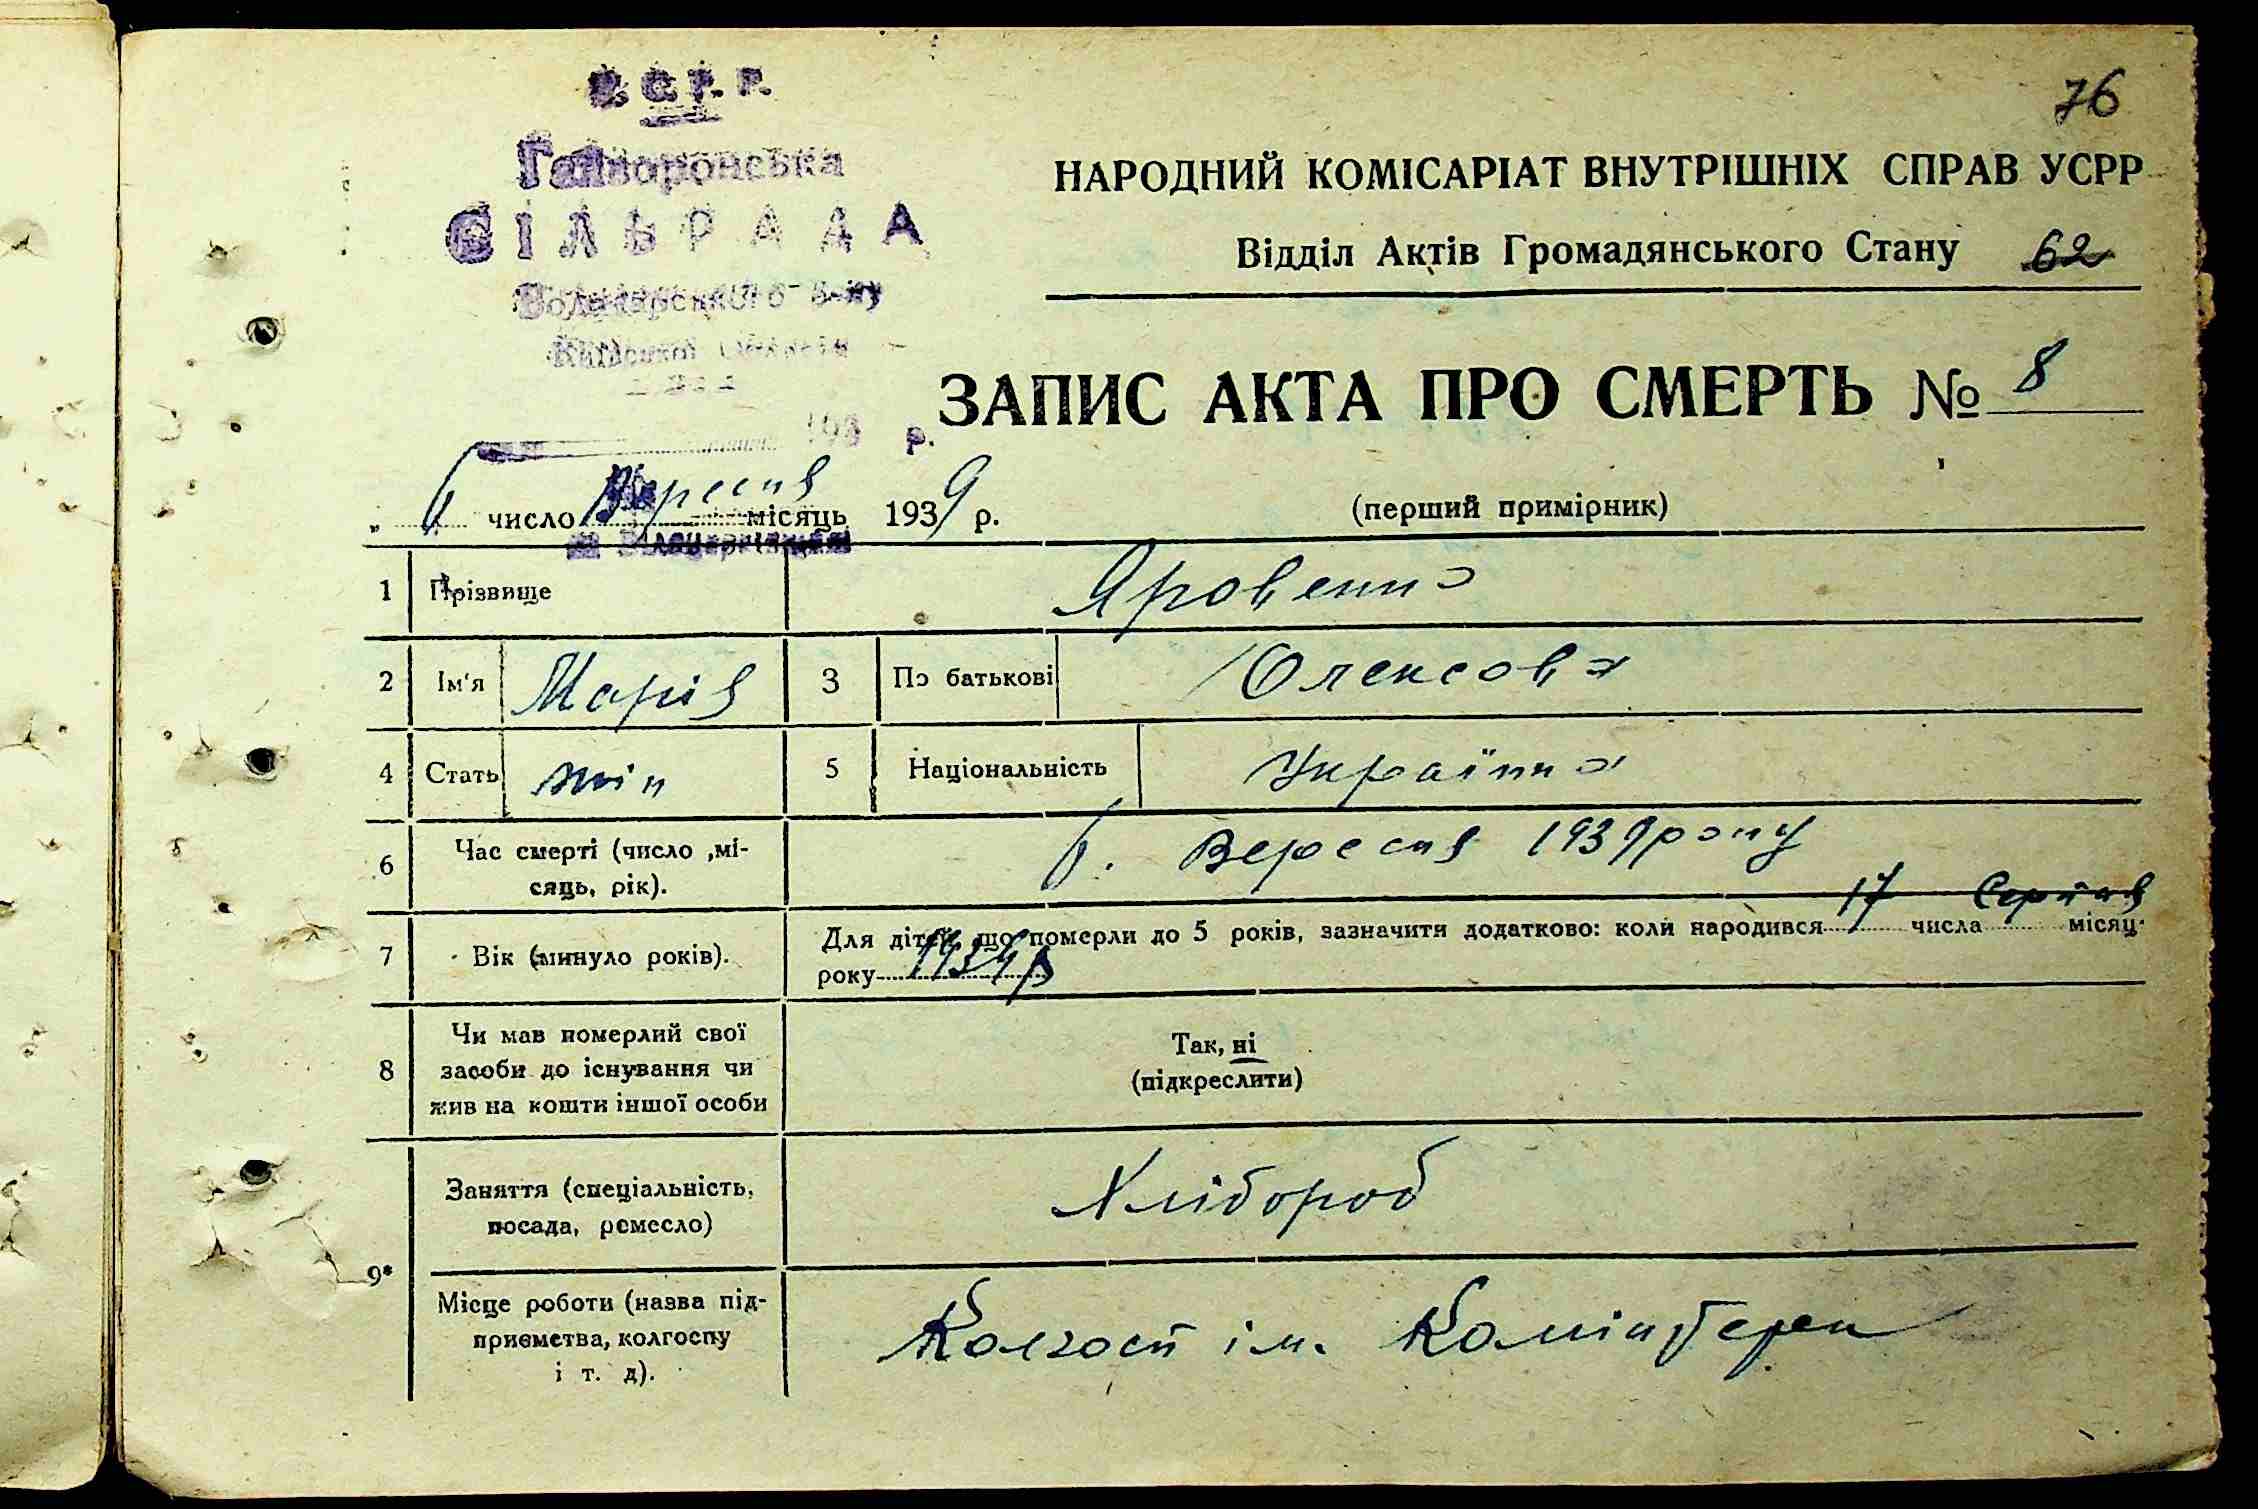 76
У.С.Р.Р.
Гайворонська
СІЛЬРАДА
Володарського р-ну
Київської області
НАРОДНИЙ КОМІСАРІАТ ВНУТРІШНІХ СПРАВ УСРР
Відділ Актів Громадянського Стану 62
ЗАПИС АКТА ПРО СМЕРТЬ № 8
193 р.
„ 6 число Вересня місяць 1939 р. (перший примірник)
1 Прізвище Яровенко
2 Ім'я Марія 3 По батькові Олексова
4 Стать жін 5 Національність Українка
6 Час смерті (число ,мі-
сяць, рік).
6. Вересня 1939 року
7 Вік (минуло років).
Для дітей, що померли до 5 років, зазначити додатково: коли народився 17 числа Серпня місяц
року 1939 р
8 Чи мав померлий свої
засоби до існування чи
жив на кошти іншої особи
Так, ні
(підкреслити)
9* Заняття (спеціальність,
посада, ремесло)
Хлібороб
Місце роботи (назва під-
приємства, колгоспу
і т. д).
Колгосп ім. Комінтерн